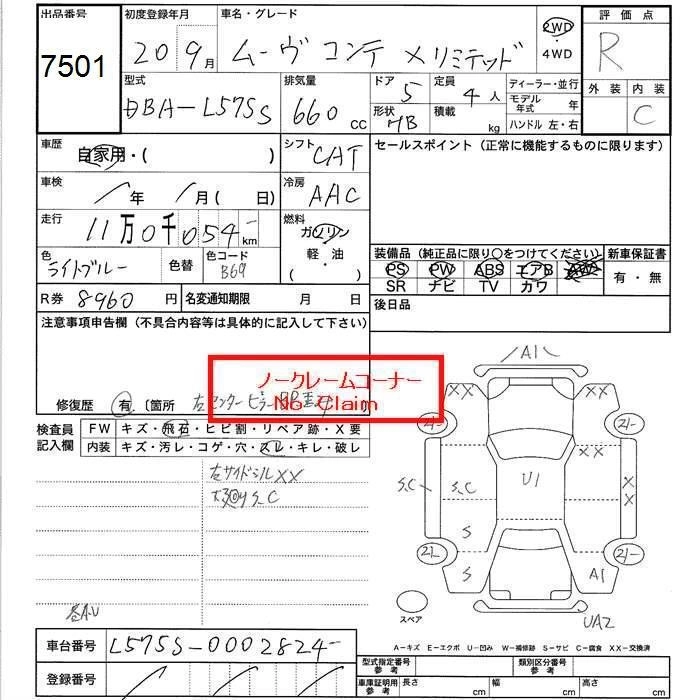 出品番号 初度登録年月 車名・グレード 評価点
7501 20 9月 ムーヴ コンテ X リミテッド 2WD ・ 4WD R
外装 内装
C
型式 排気量 ドア 定員 ディーラー・並行
DBA-L575S 660 CC 5 4人 モデル年式 年
形状 HB 積載 kg ハンドル 左・右
車歴 自家用・( ) シフト CAT セールスポイント (正常に機能するものに限ります)
車検 年 月( 日) 冷房 AAC
走行 11万0千054km 燃料 ガソリン
軽・油
( )
色 ライトブルー 色替 色コード B69
装備品 (純正品に限り○をつけてください) 新車保証書
PS PW ABS エアB AW 有・無
SR ナビ TV カワ
R券 8960 円 名変通知期限 月 日 後日品
注意事項申告欄 (不具合内容等は具体的に記入して下さい)
ノークレームコーナー
No Claim
修復歴 有 〔箇所 左センターピラー
検査員記入欄 FW キズ・飛石・ヒビ割・リペア跡・X要
内装 キズ・汚レ・コゲ・穴・スレ・キレ・破レ
左サイドシルXX
S.C
各A.U
A1
XX XX
2L- 2L-
XX
S.C S.C U1 XX
S
2L 2L-
S A1
UA2
スペア
A-キズ E-エクボ U-凹み W-補修跡 S-サビ C-腐食 XX-交換済
車台番号 L575S-0002824-
登録番号
型式指定番号 参考 類別区分番号 参考
車庫証明用 参考 長さ cm 幅 cm 高さ cm